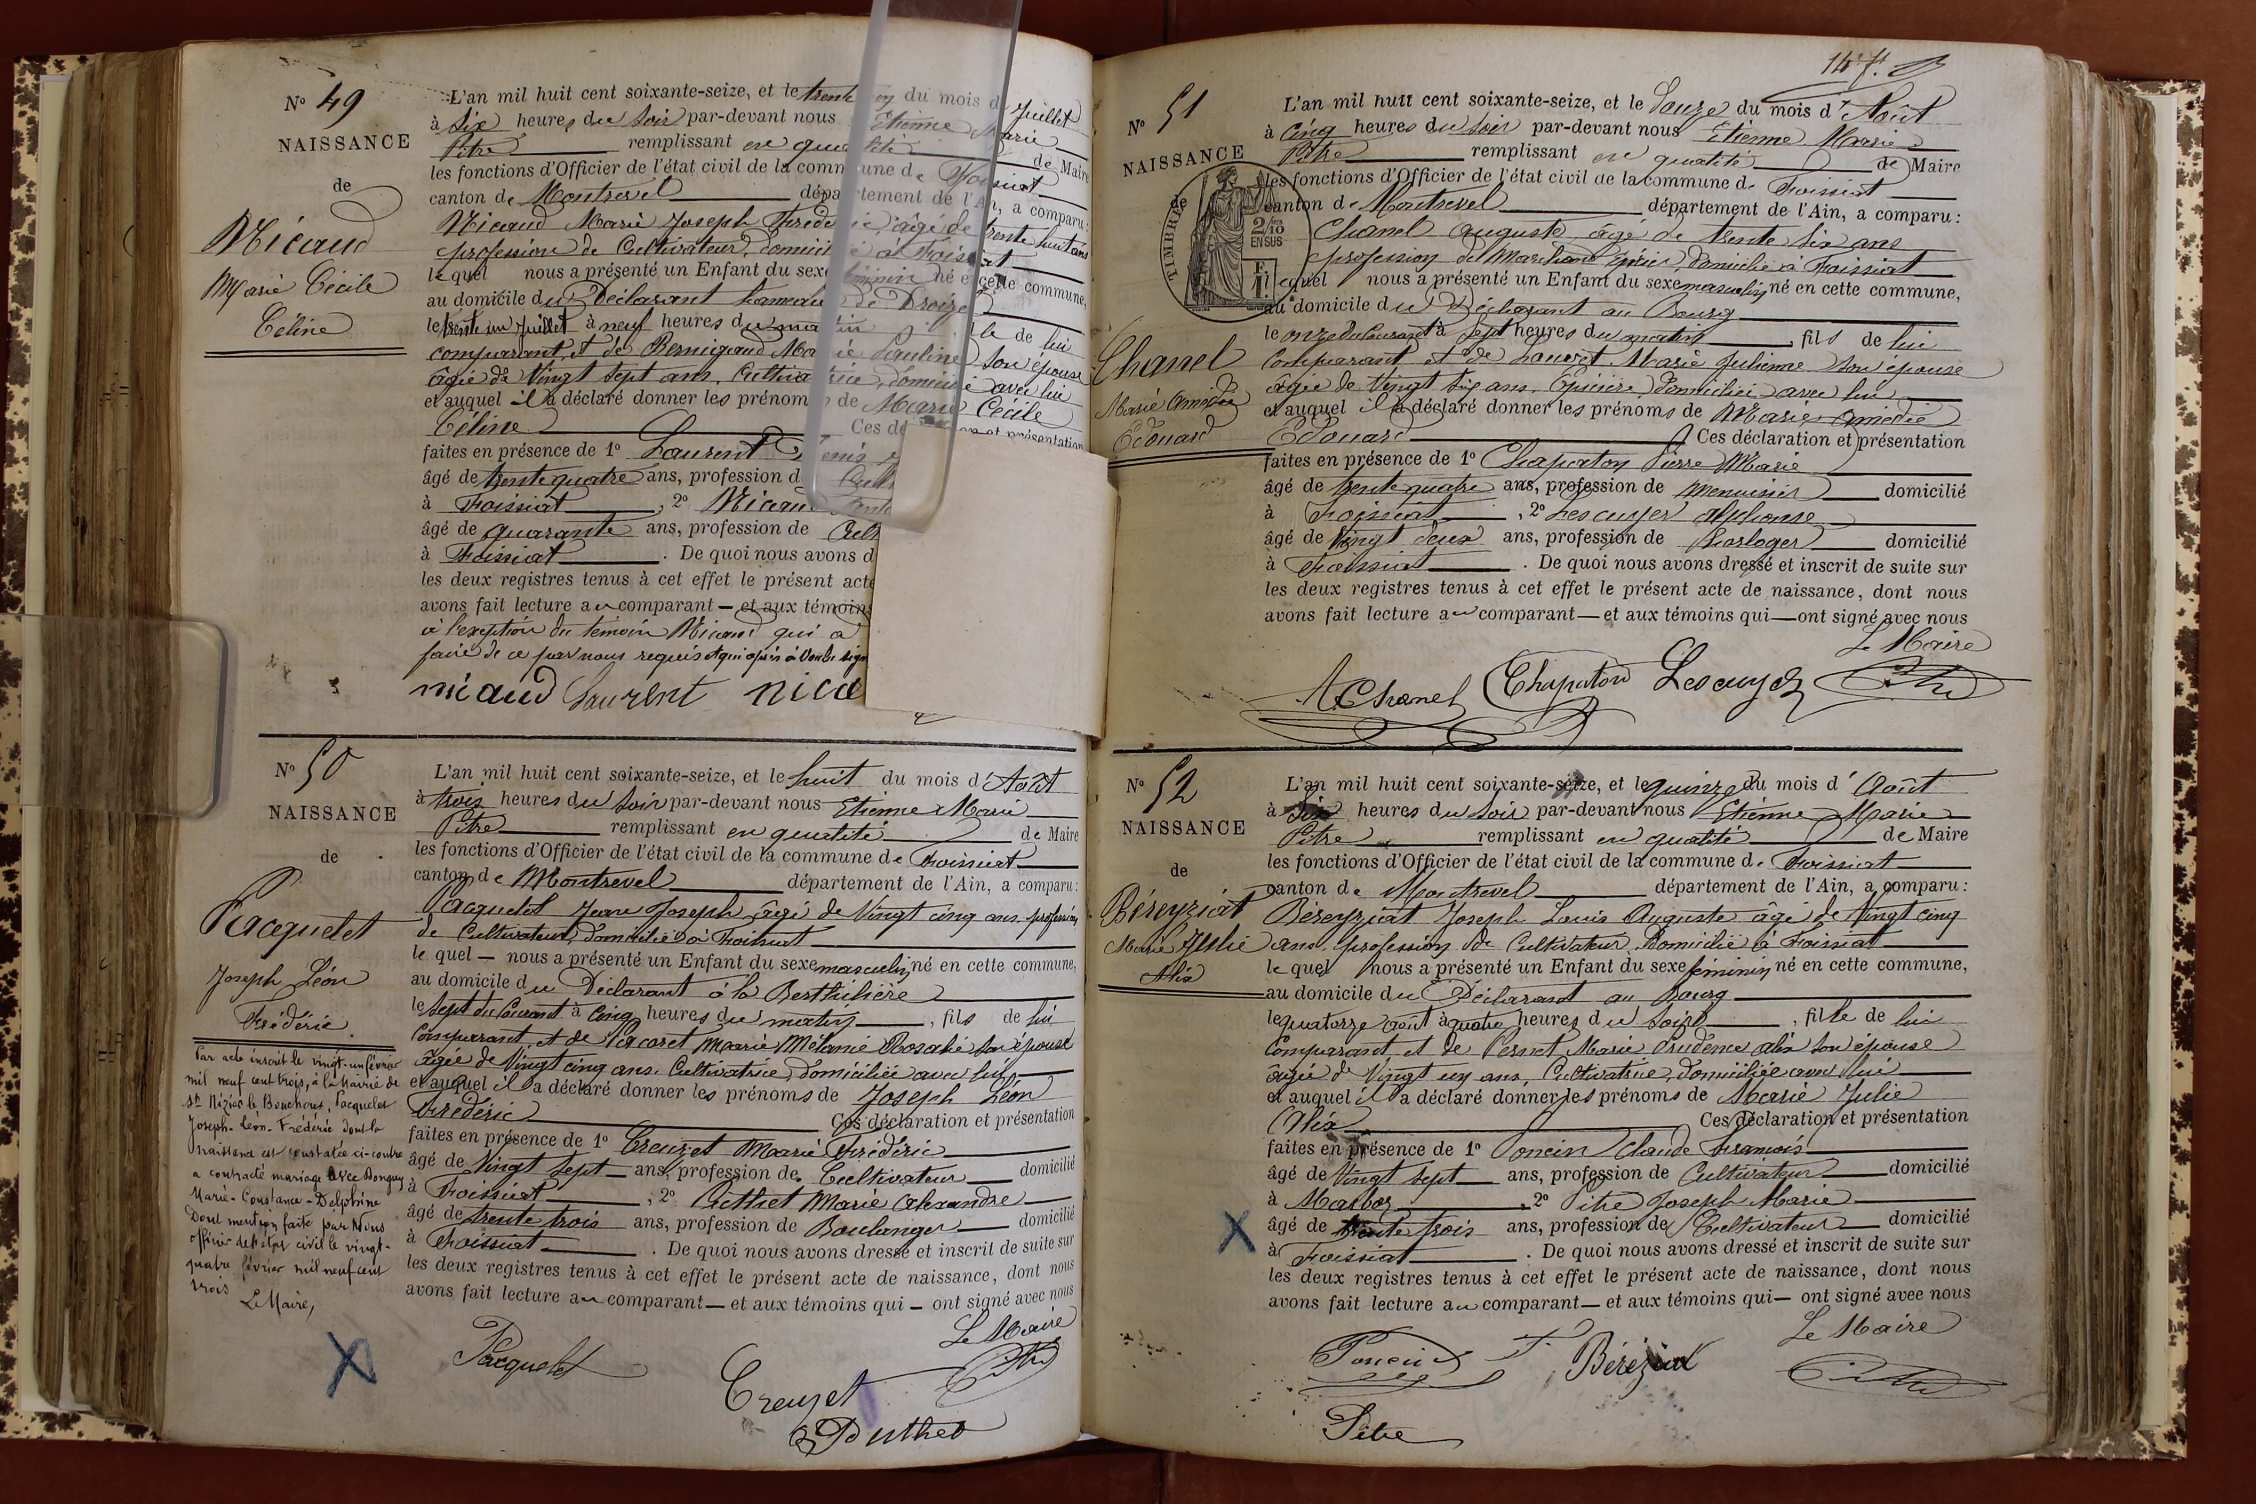 No 49
NAISSANCE
de
Nicaud
Marie Cécile
Céline
L'an mil huit cent soixante-seize, et le trente un du mois de Juillet
à Six heures du Soir par-devant nous Etienne Marie
Pitre remplissant en qualité de Maire
les fonctions d'Officier de l'état civil de la commune de Foissiat
canton de Montrevel département de l'Ain, a comparu:
Nicaud Marie Joseph Frédéric, âgé de trente huit ans
profession de Cultivateur, domicilié à Foissiat
lequel nous a présenté un Enfant du sexe féminin né en cette commune,
au domicile du Déclarant hameau de
le trente un Juillet à neuf heures du matin fille de lui
comparant, et de Bernigaud Marie Pauline, son épouse
âgée de Vingt Sept ans, Cultivatrice, domiciliée avec lui
et auquel il a déclaré donner les prénoms de Marie Cécile
Céline Ces déclaration et présentation
faites en présence de 1º Laurent Denis
âgé de trente quatre ans, profession de Cult
à Foissiat, 2º Nicaud
âgé de quarante ans, profession de Cult
à Foissiat. De quoi nous avons d
les deux registres tenus à cet effet le présent acte
avons fait lecture au comparant — et aux témoins
à l'exception du témoin Nicaud qui a
faire de ce par nous requis et qui après a Voulu sign
nicaud Laurent nica
No 50
NAISSANCE
de
Pacquelet
Joseph Léon
Frédéric.
Par acte inscrit le vingt-un février
mil neuf cent trois, à la Mairie de
St Nizier le Bouchoux, Pacquelet
Joseph-Léon-Frédéric dont la
naissance est constatée ci-contre
a contracté mariage avec Donguy
Marie-Constance-Delphine
Dont mention faite par Nous
officier de l'état civil le vingt-
quatre février mil neuf cent
trois
Le Maire,
L'an mil huit cent soixante-seize, et le huit du mois d'Août
à trois heures du Soir par-devant nous Etienne Marie
Pitre remplissant en qualité de Maire
les fonctions d'Officier de l'état civil de la commune de Foissiat
canton de Montrevel département de l'Ain, a comparu:
Pacquelet Jean Joseph, âgé de Vingt cinq ans, profession
de Cultivateur, domicilié à Foissiat
le quel — nous a présenté un Enfant du sexe masculin né en cette commune,
au domicile du Déclarant à la Berthilière
le Sept du Courant à Cinq heures du matin, fils de lui
Comparant, et de Pacoret Marie Mélanie Rosalie son épouse
âgée de Vingt cinq ans, Cultivatrice, domiciliée avec lui
et auquel il a déclaré donner les prénoms de Joseph Léon
Frédéric Ces déclaration et présentation
faites en présence de 1º Creuzet Marie Frédéric
âgé de Vingt Sept ans, profession de Cultivateur domicilié
à Foissiat, 2º Buthet Marie Alexandre
âgé de trente trois ans, profession de Boulanger domicilié
à Foissiat. De quoi nous avons dressé et inscrit de suite sur
les deux registres tenus à cet effet le présent acte de naissance, dont nous
avons fait lecture au comparant — et aux témoins qui — ont signé avec nous
Le Maire
Pacquelet
Creuzet
14 f.
No 51
NAISSANCE
de
TIMBRE
2/10
EN SUS
Chanel
Marie Amédée
Edouard
L'an mil huit cent soixante-seize, et le Douze du mois d'Août
à Cinq heures du Soir par-devant nous Etienne Marie
Pitre remplissant en qualité de Maire
les fonctions d'Officier de l'état civil de la commune de Foissiat
canton de Montrevel département de l'Ain, a comparu:
Chanel auguste, âgé de trente Six ans
profession de Marchand Epicier, domicilié à Foissiat
lequel nous a présenté un Enfant du sexe masculin né en cette commune,
au domicile du Déclarant au Bourg
le onze du Courant à Sept heures du matin, fils de lui
Comparant et de Louvet Marie Julienne son épouse
âgée de Vingt Six ans, Epicière, domiciliée avec lui
et auquel il a déclaré donner les prénoms de Marie Amédée
Edouard Ces déclaration et présentation
faites en présence de 1º Chapaton Pierre Marie
âgé de trente quatre ans, profession de Menuisier domicilié
à Foissiat, 2º Lescuyer alphonse
âgé de Vingt deux ans, profession de horloger domicilié
à Foissiat. De quoi nous avons dressé et inscrit de suite sur
les deux registres tenus à cet effet le présent acte de naissance, dont nous
avons fait lecture au comparant — et aux témoins qui — ont signé avec nous
Le Maire
A Chanel Chapaton Lescuyer
No 52
NAISSANCE
de
Béreyziat
Marie Julie
Alix
L'an mil huit cent soixante-seize, et le quinze du mois d'Août
à Six heures du Soir par-devant nous Etienne Marie
Pitre remplissant en qualité de Maire
les fonctions d'Officier de l'état civil de la commune de Foissiat
canton de Montrevel département de l'Ain, a comparu:
Béreyziat Joseph Louis Auguste âgé de Vingt cinq
ans, profession de Cultivateur, Domicilié à Foissiat
le quel nous a présenté un Enfant du sexe féminin né en cette commune,
au domicile du Déclarant au Bourg
le quatorze août à quatre heures du Soir, fille de lui
Comparant et de Pernet Marie Prudence alix son épouse
âgée de Vingt un ans, Cultivatrice, domiciliée avec lui
et auquel il a déclaré donner les prénoms de Marie Julie
Alix Ces déclaration et présentation
faites en présence de 1º Poncin Claude François
âgé de Vingt Sept ans, profession de Cultivateur domicilié
à Marboz, 2º Pitre Joseph Marie
âgé de trente trois ans, profession de Cultivateur domicilié
à Foissiat. De quoi nous avons dressé et inscrit de suite sur
les deux registres tenus à cet effet le présent acte de naissance, dont nous
avons fait lecture au comparant — et aux témoins qui — ont signé avec nous
Le Maire
Poncin Béréziat
Pitre